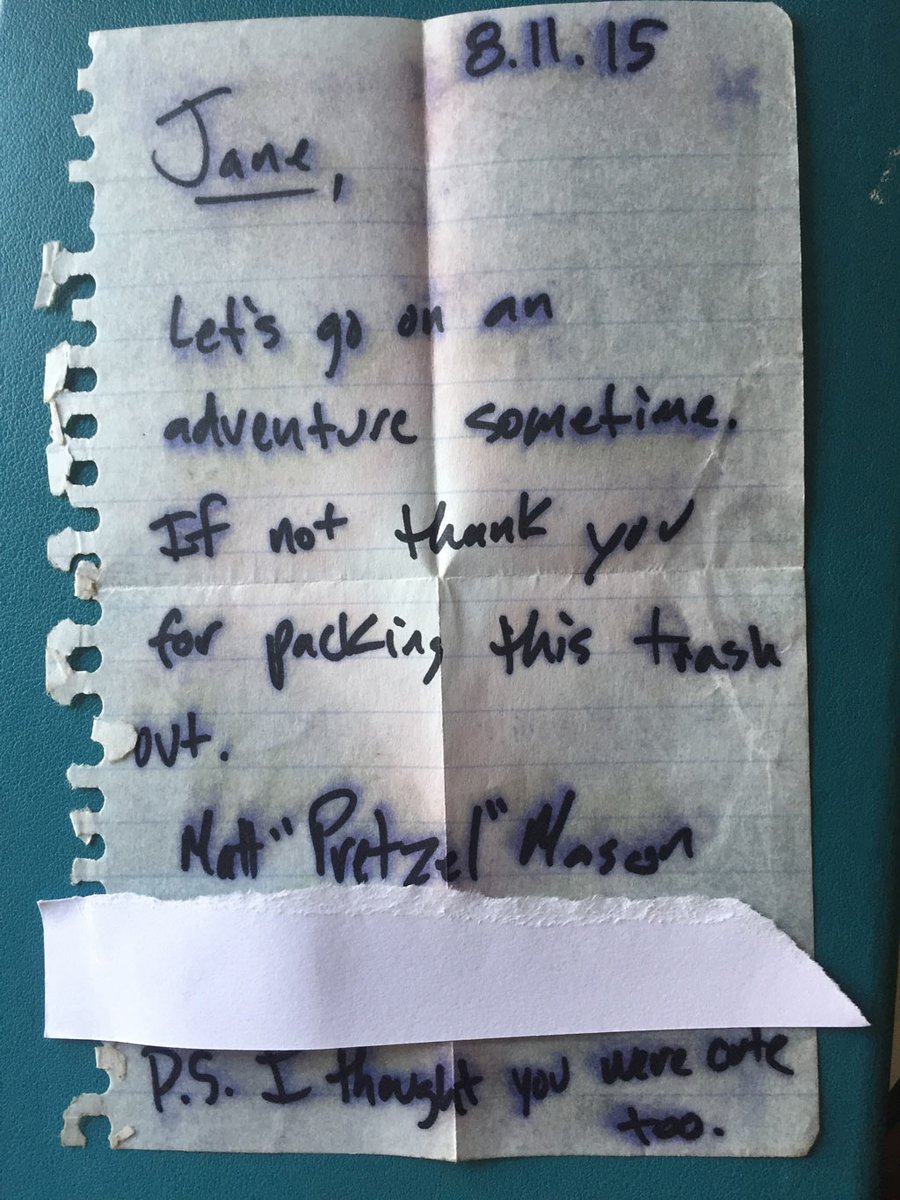 8.11.15
Jane,
Let's go on an
adventure sometime.
If not thank you
for packing this trash
out.
Matt "Pretzel" Mason
P.S. I thought you were cute
too.